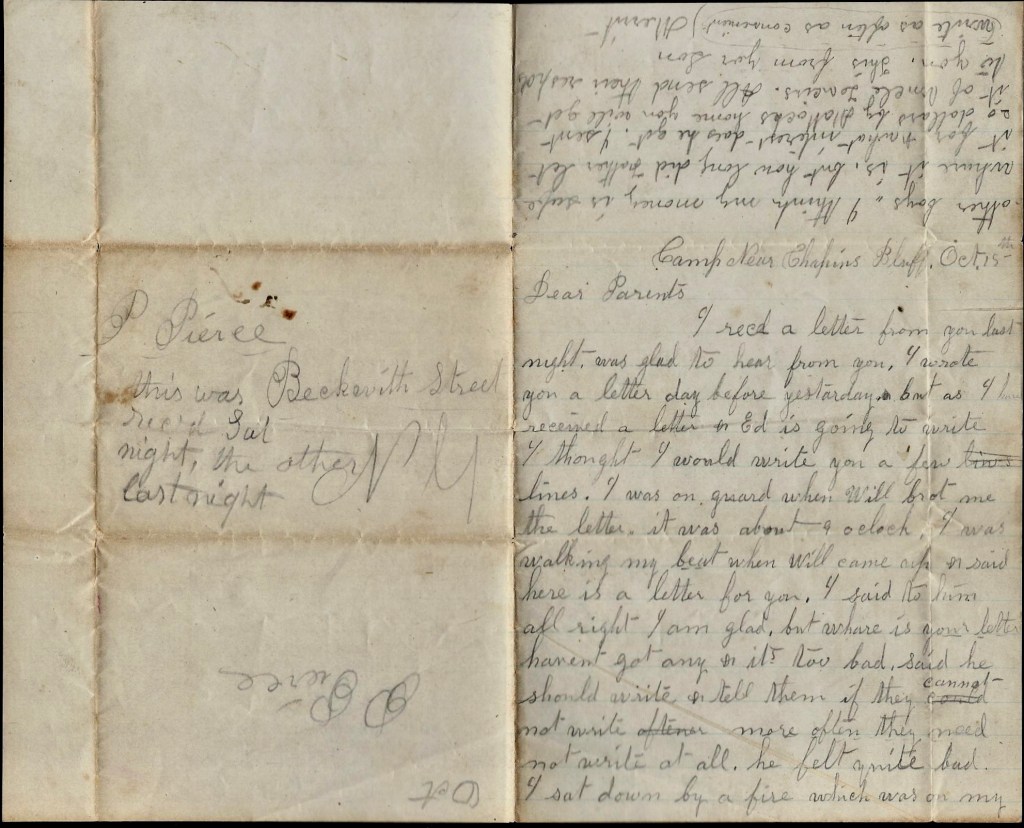 P Pierce
this was Beckwith Street
rec'd Sat
night, the other N Y
last night
P Pierce
Oct
(write as often as convenient) Merrit
to you. This from yor Son
it of Uncle Loneirs. All send their respts
20 dollars by Matlocks home you will get
it for & what interest does he get. I sent
whare it is. but how long did Father let
other boys " I think my money is safe
Camp Near Chapins Bluff. Oct. 15th
Dear Parents
I recd a letter from you last
night. was glad to hear from you, I wrote
you a letter day before yestarday. but as I
received a letter & Ed is going to write
I thought I would write you a few lines
lines. I was on guard when Will brot me
the letter. it was about 9 oclock, I was
walking my beat when Will came up & said
here is a letter for you. I said to him
all right I am glad. but whare is your letter
havent got any & its too bad. said he
should write & tell them if they could cannot
not write oftener more often they need
not write at all. he felt quite bad.
I sat down by a fire which was on my